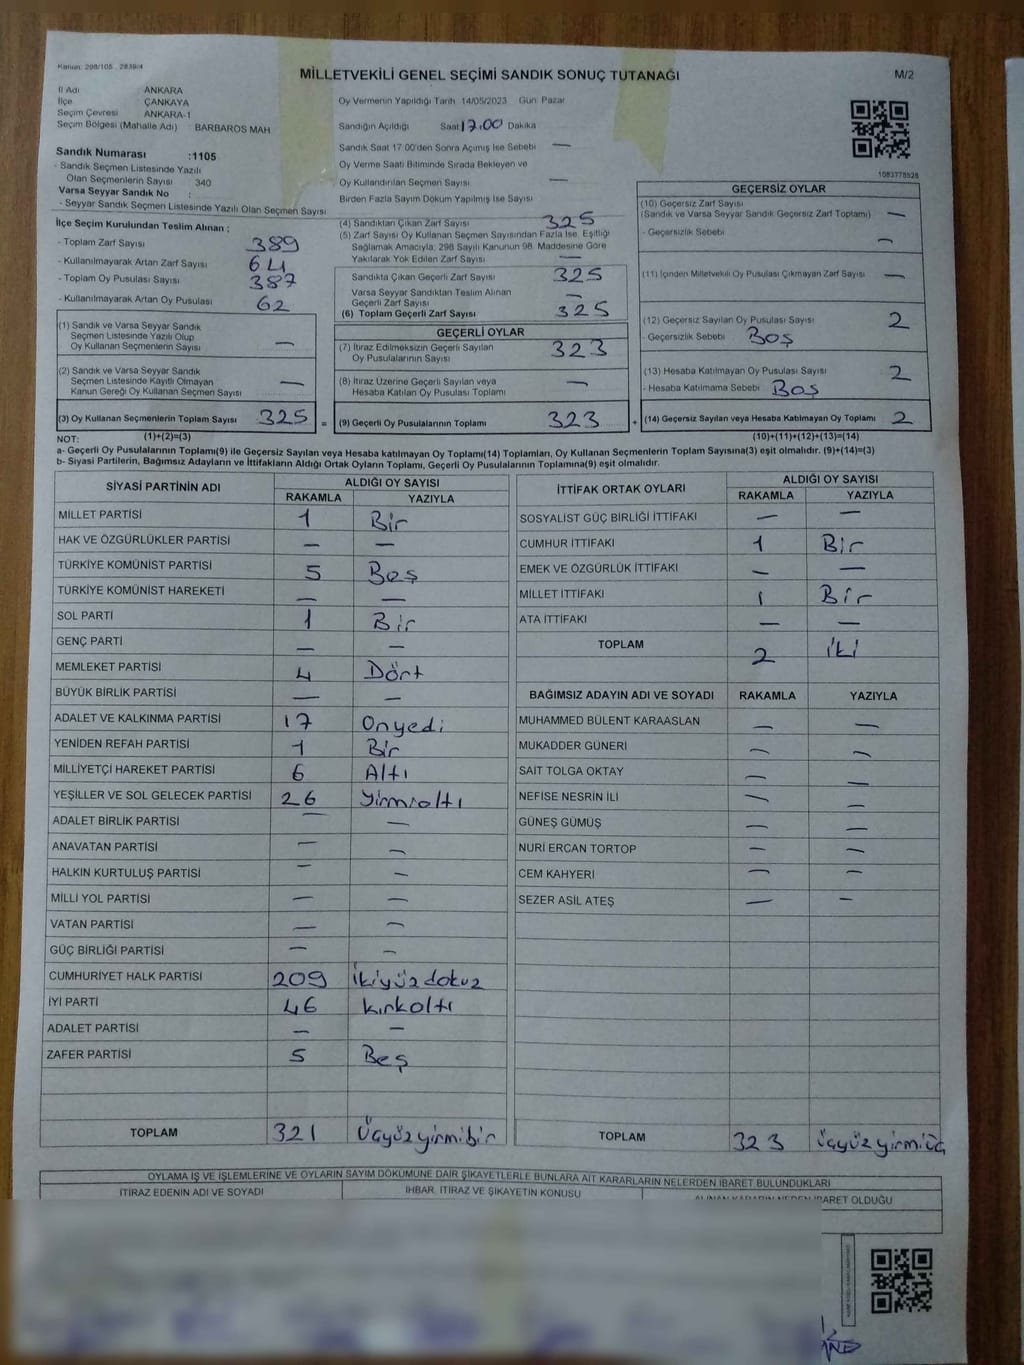 Kanun: 298/105 . 2839/4
MİLLETVEKİLİ GENEL SEÇİMİ SANDIK SONUÇ TUTANAĞI
M/2
İl Adı ANKARA
İlçe ÇANKAYA
Seçim Çevresi ANKARA-1
Seçim Bölgesi (Mahalle Adı) BARBAROS MAH
Sandık Numarası :1105
- Sandık Seçmen Listesinde Yazılı
Olan Seçmenlerin Sayısı 340
Varsa Seyyar Sandık No :
- Seyyar Sandık Seçmen Listesinde Yazılı Olan Seçmen Sayısı
Oy Vermenin Yapıldığı Tarih 14/05/2023 Gün Pazar
Sandığın Açıldığı Saat 17.00 Dakika
Sandık Saat 17 00'den Sonra Açımış İse Sebebi —
Oy Verme Saati Bitiminde Sırada Bekleyen ve
Oy Kullandırılan Seçmen Sayısı —
Birden Fazla Sayım Döküm Yapılmış İse Sayısı
1083778528
İlçe Seçim Kurulundan Teslim Alınan ;
- Toplam Zarf Sayısı 389
- Kullanılmayarak Artan Zarf Sayısı 64
- Toplam Oy Pusulası Sayısı 387
- Kullanılmayarak Artan Oy Pusulası 62
(1) Sandık ve Varsa Seyyar Sandık
Seçmen Listesinde Yazılı Olup
Oy Kullanan Seçmenlerin Sayısı —
(2) Sandık ve Varsa Seyyar Sandık
Seçmen Listesinde Kayıtlı Olmayan
Kanun Gereği Oy Kullanan Seçmen Sayısı —
(3) Oy Kullanan Seçmenlerin Toplam Sayısı 325 =
(4) Sandıktan Çıkan Zarf Sayısı 325
(5) Zarf Sayısı Oy Kullanan Seçmen Sayısından Fazla İse, Eşitliği
Sağlamak Amacıyla, 298 Sayılı Kanunun 98. Maddesine Göre
Yakılarak Yok Edilen Zarf Sayısı —
Sandıkta Çıkan Geçerli Zarf Sayısı 325
Varsa Seyyar Sandıktan Teslim Alınan
Geçerli Zarf Sayısı —
(6) Toplam Geçerli Zarf Sayısı 325
GEÇERLİ OYLAR
(7) İtiraz Edilmeksizin Geçerli Sayılan
Oy Pusulalarının Sayısı 323
(8) İtiraz Üzerine Geçerli Sayılan veya
Hesaba Katılan Oy Pusulası Toplamı —
(9) Geçerli Oy Pusulalarının Toplamı 323 +
GEÇERSİZ OYLAR
(10) Geçersiz Zarf Sayısı
(Sandık ve Varsa Seyyar Sandık Geçersiz Zarf Toplamı) —
- Geçersizlik Sebebi —
(11) İçinden Milletvekili Oy Pusulası Çıkmayan Zarf Sayısı —
(12) Geçersiz Sayılan Oy Pusulası Sayısı 2
- Geçersizlik Sebebi Boş
(13) Hesaba Katılmayan Oy Pusulası Sayısı 2
- Hesaba Katılmama Sebebi Boş
(14) Geçersiz Sayılan veya Hesaba Katılmayan Oy Toplamı 2
NOT: (1)+(2)=(3) (10)+(11)+(12)+(13)=(14)
a- Geçerli Oy Pusulalarının Toplamı(9) ile Geçersiz Sayılan veya Hesaba Katılmayan Oy Toplamı(14) Toplamları, Oy Kullanan Seçmenlerin Toplam Sayısına(3) eşit olmalıdır. (9)+(14)=(3)
b- Siyasi Partilerin, Bağımsız Adayların ve İttifakların Aldığı Ortak Oyların Toplamı, Geçerli Oy Pusulalarının Toplamına(9) eşit olmalıdır.
SİYASİ PARTİNİN ADI ALDIĞI OY SAYISI
RAKAMLA YAZIYLA
MİLLET PARTİSİ 1 Bir
HAK VE ÖZGÜRLÜKLER PARTİSİ — —
TÜRKİYE KOMÜNİST PARTİSİ 5 Beş
TÜRKİYE KOMÜNİST HAREKETİ — —
SOL PARTİ 1 Bir
GENÇ PARTİ — —
MEMLEKET PARTİSİ 4 Dört
BÜYÜK BİRLİK PARTİSİ — —
ADALET VE KALKINMA PARTİSİ 17 Onyedi
YENİDEN REFAH PARTİSİ 1 Bir
MİLLİYETÇİ HAREKET PARTİSİ 6 Altı
YEŞİLLER VE SOL GELECEK PARTİSİ 26 Yirmialtı
ADALET BİRLİK PARTİSİ — —
ANAVATAN PARTİSİ — —
HALKIN KURTULUŞ PARTİSİ — —
MİLLİ YOL PARTİSİ — —
VATAN PARTİSİ — —
GÜÇ BİRLİĞİ PARTİSİ — —
CUMHURİYET HALK PARTİSİ 209 İkiyüzdokuz
İYİ PARTİ 46 Kırkaltı
ADALET PARTİSİ — —
ZAFER PARTİSİ 5 Beş
TOPLAM 321 Üçyüzyirmibir
İTTİFAK ORTAK OYLARI ALDIĞI OY SAYISI
RAKAMLA YAZIYLA
SOSYALİST GÜÇ BİRLİĞİ İTTİFAKI — —
CUMHUR İTTİFAKI 1 Bir
EMEK VE ÖZGÜRLÜK İTTİFAKI — —
MİLLET İTTİFAKI 1 Bir
ATA İTTİFAKI — —
TOPLAM 2 İki
BAĞIMSIZ ADAYIN ADI VE SOYADI RAKAMLA YAZIYLA
MUHAMMED BÜLENT KARAASLAN — —
MUKADDER GÜNERİ — —
SAİT TOLGA OKTAY — —
NEFİSE NESRİN İLİ — —
GÜNEŞ GÜMÜŞ — —
NURİ ERCAN TORTOP — —
CEM KAHYERİ — —
SEZER ASİL ATEŞ — —
TOPLAM 323 Üçyüzyirmiüç
OYLAMA İŞ VE İŞLEMLERİNE VE OYLARIN SAYIM DÖKÜMÜNE DAİR ŞİKAYETLERLE BUNLARA AİT KARARLARIN NELERDEN İBARET BULUNDUKLARI
İTİRAZ EDENİN ADI VE SOYADI
İHBAR, İTİRAZ VE ŞİKAYETİN KONUSU
ALINAN KARARIN NEDEN İBARET OLDUĞU